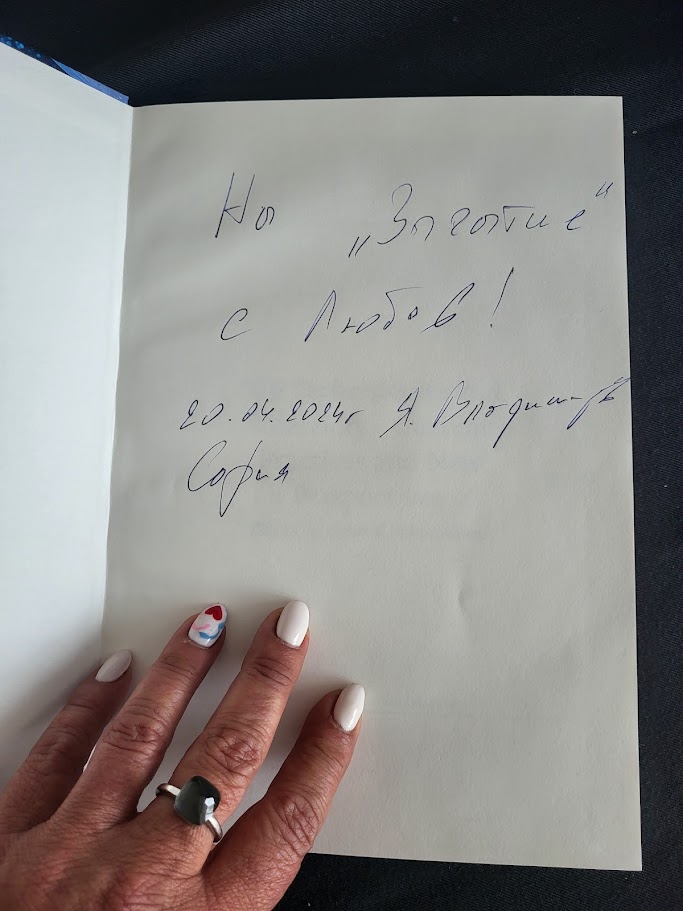 На „Загатие"
с Любов!
20.04.2024г Я. Владимиров
София